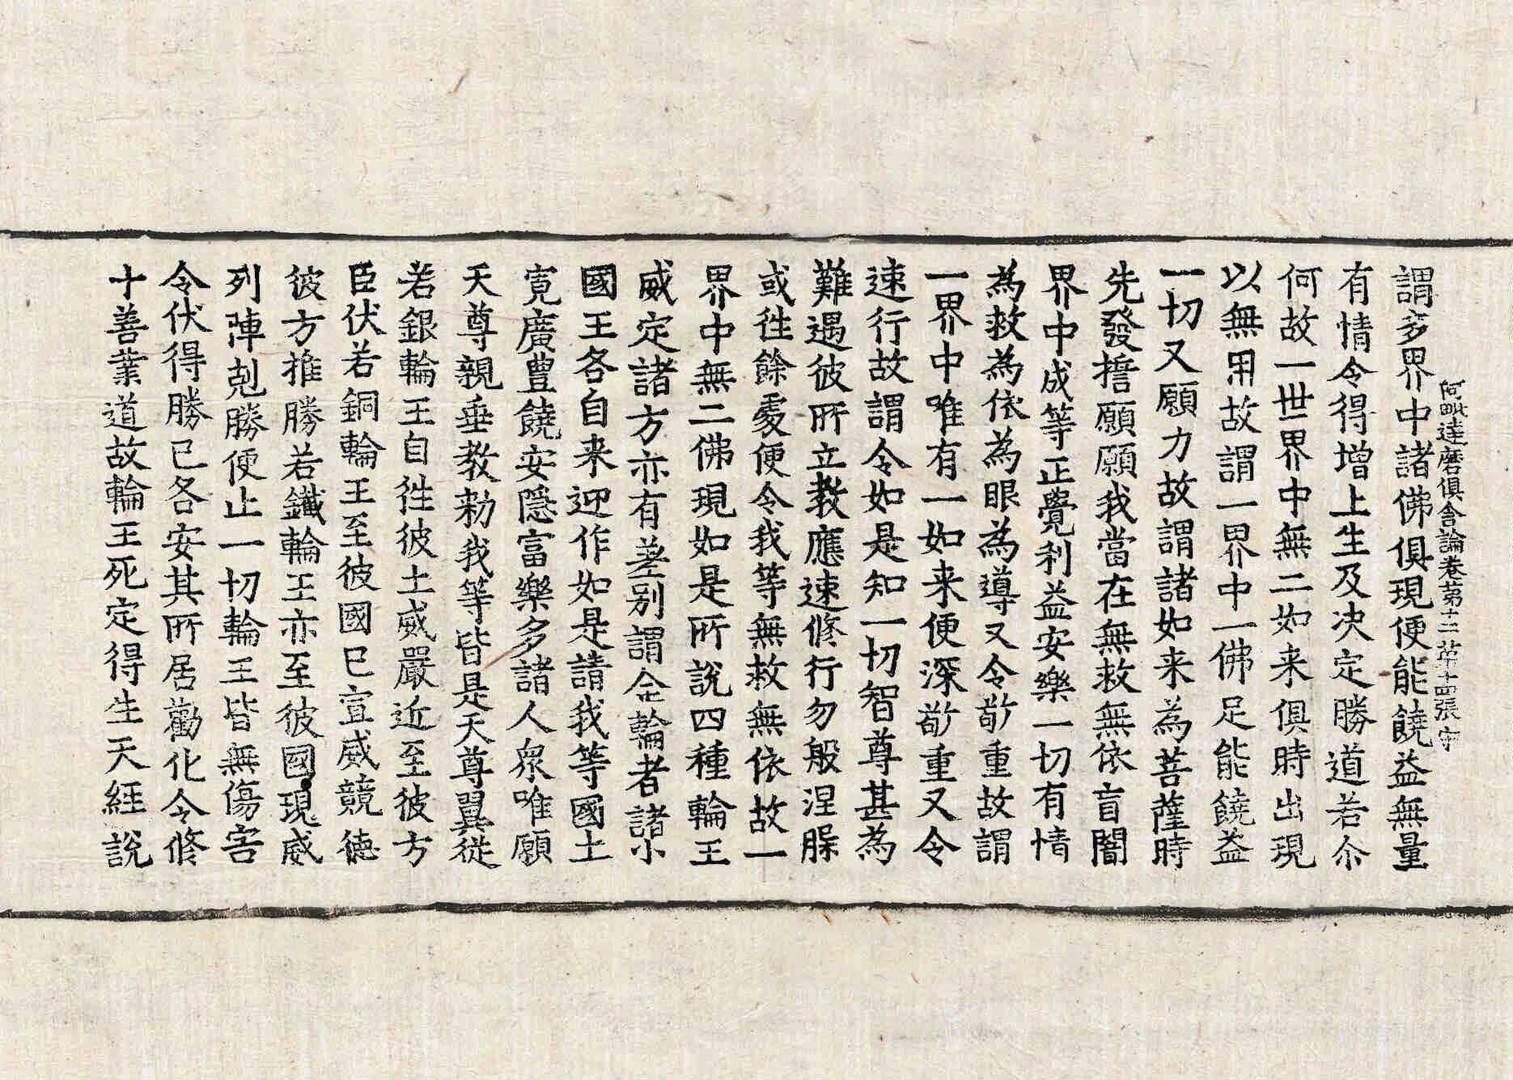 阿毗達磨俱舍論卷第十二 第十四張 守
謂多界中諸佛俱現便能饒益無量
有情令得增上生及决定勝道若尒
何故一世界中無二如来俱時出現
以無用故謂一界中一佛足能饒益
一切又願力故謂諸如来為菩薩時
先發擔願願我當在無救無依盲闇
界中成等正覺利益安樂一切有情
為救為依為眼為導又令敬重故謂
一界中唯有一如来便深敬重又令
速行故謂令如是知一切智尊甚為
難遇彼所立教應速修行勿般涅槃
或徃餘處便令我等無救無依故一
界中無二佛現如是所說四種輪王
威定諸方亦有差别謂金輪者諸小
國王各自来迎作如是請我等國土
寬廣豊饒安隱富樂多諸人衆唯願
天尊親垂教勑我等皆是天尊翼從
若銀輪王自徃彼土威嚴近至彼方
臣伏若銅輪王至彼國已宣威競德
彼方推勝若鐵輪王亦至彼國現威
列陣剋勝便止一切輪王皆無傷害
令伏得勝已各安其所居勸化令修
十善業道故輪王死定得生天經說